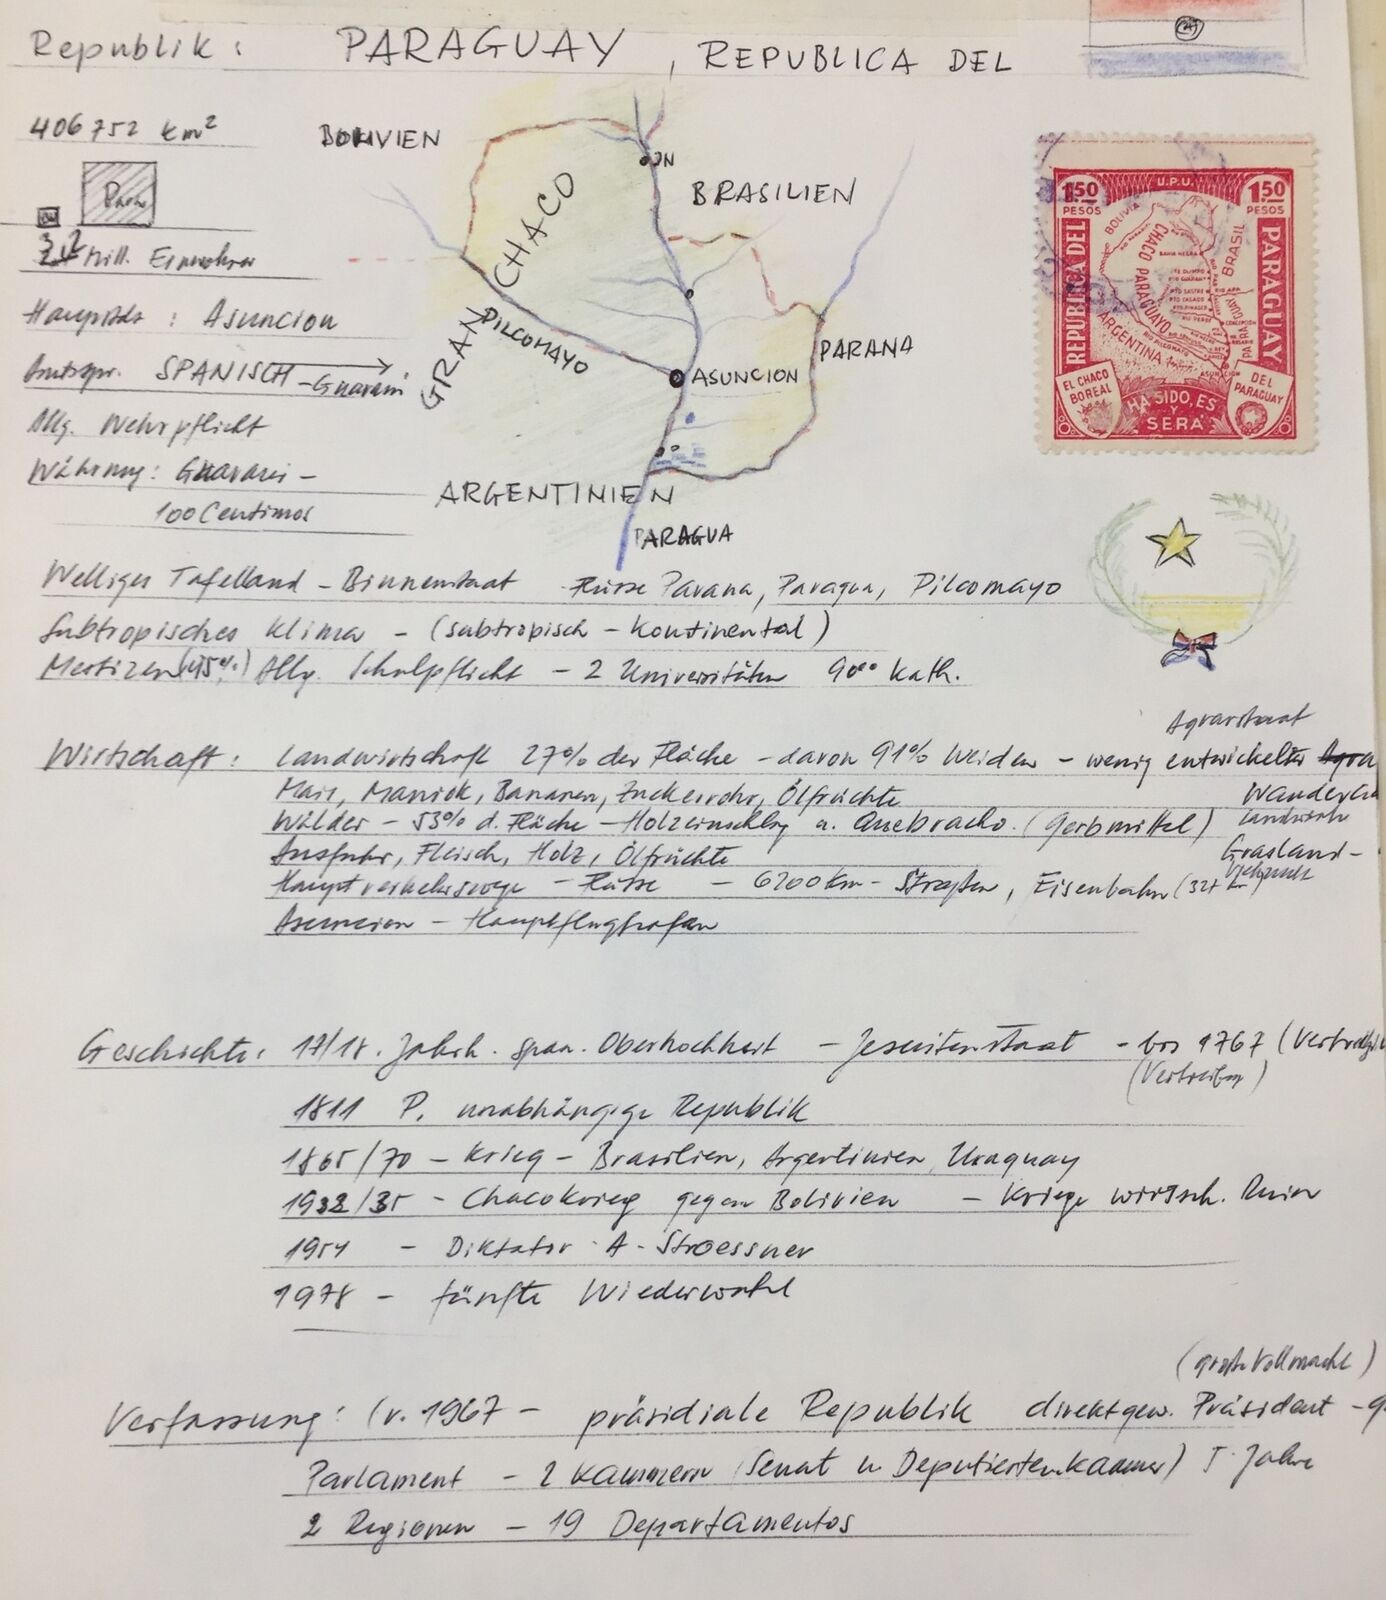 Republik: PARAGUAY, REPUBLICA DEL
406752 km²
Mill. Einwohner
: Asuncion
Amtspr. SPANISCH - Guarani
Allg. Wehrpflicht
Währung: Guarani -
100 Centimos
BOLIVIEN
BRASILIEN
GRAN CHACO
PILCOMAYO
PARANA
ASUNCION
ARGENTINIEN
PARAGUA
U.P.U.
1.50 PESOS
1.50 PESOS
REPUBLICA DEL
PARAGUAY
BOLIVIA
BRASIL
CHACO PARAGUAYO
ARGENTINA
EL CHACO BOREAL
HA SIDO, ES Y SERA
DEL PARAGUAY
Welliges Tafelland - Binnenstaat Flüsse Parana, Paragua, Pilcomayo
Subtropisches Klima - (subtropisch - Kontinental)
Mestizen (95%) Allg. Schulpflicht - 2 Universitäten 90% Kath.
Agrarstaat
Wirtschaft: Landwirtschaft 27% der Fläche - davon 91% Weiden - wenig entwickelter
Mais, Maniok, Bananen, Zuckerrohr, Ölfrüchte
Wälder - 53% d. Fläche - Holzeinschlag u. Quebracho. (Gerbmittel)
Ausfuhr, Fleisch, Holz, Ölfrüchte
Grasland-
Hauptverkehrswege - Flüsse - 6200 km - Straßen, Eisenbahn
Asuncion - Hauptflughafen
Geschichte: 17/18. Jahrh. span. Oberhochheit - Jesuitenstaat - bis 1767
(Vertreibung)
1811 P. unabhängige Republik
1865/70 - Krieg - Brasilien, Argentinien, Uruguay
1932/35 - Chacokrieg gegen Bolivien - Kriege wirtsch. Ruin
1954 - Diktator A. Stroessner
1978 - fünfte Wiederwahl
(große Vollmacht)
Verfassung: (v. 1967 - präsidiale Republik direktgew. Präsident -
Parlament - 2 Kammern (Senat u. Deputiertenkammer) 5 Jahre
2 Regionen - 19 Departamentos